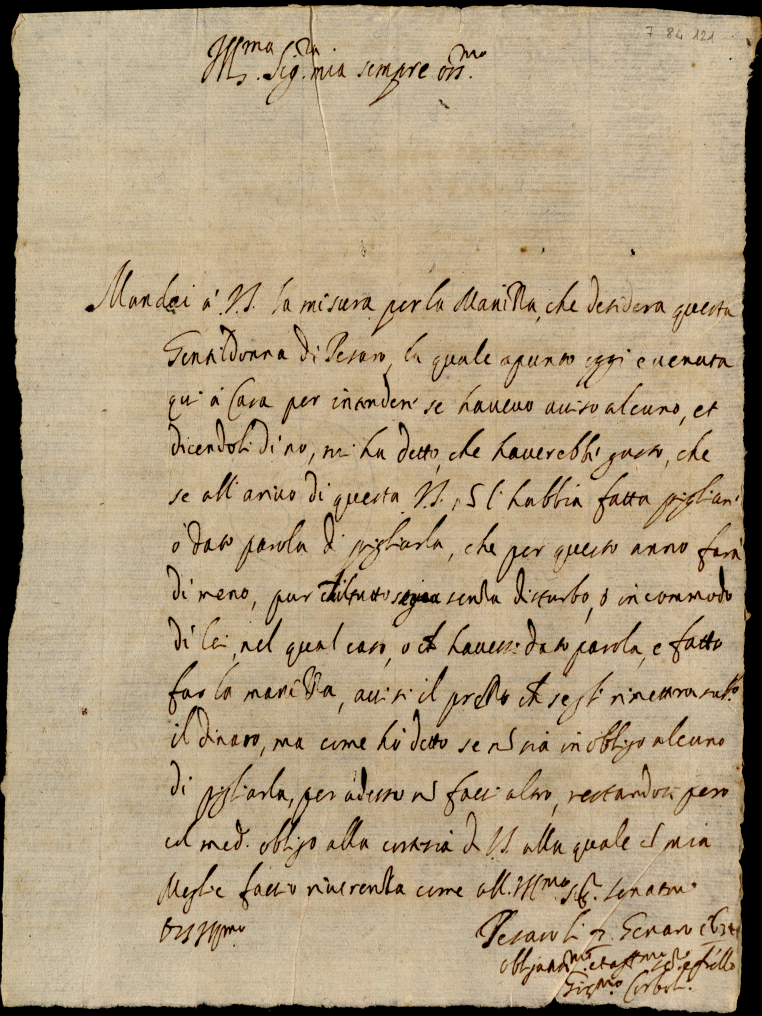 7 84 121
Ill.ma Sig.ra mia sempre oss.ma
Mandai à V.S. la misura per la Maniglia, che desidera questa
Gentildonna di Pesaro, la quale apunto oggi è venuta
qui à Casa per intender se havevo aviso alcuno, et
dicendoli di no, mi ha detto, che haverebbe gusto, che
se all'arivo di questa V.S. nõ l'habbia fatta pigliare
ò dato parola di pigliarla, che per questo anno farà
di meno, pur che il tutto segua senza disturbo, o incommodo
di lei, nel qual caso, o che havesse dato parola, e fatto
far la maniglia, avisi il prezzo che se gli rimetterà subº
il dinaro, ma come hò detto se nõ sia in obligo alcuno
di pigliarla, per adesso nõ facci altro, restandosi però
col med.º obligo alla cortesia di V.S. alla quale cõ mia
Moglie faccio riverenza come all'Ill.mo Sig.
Pesaro li Genaro
et aff.mo